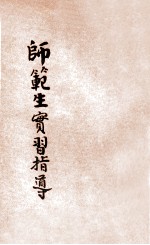 師範生實習指導